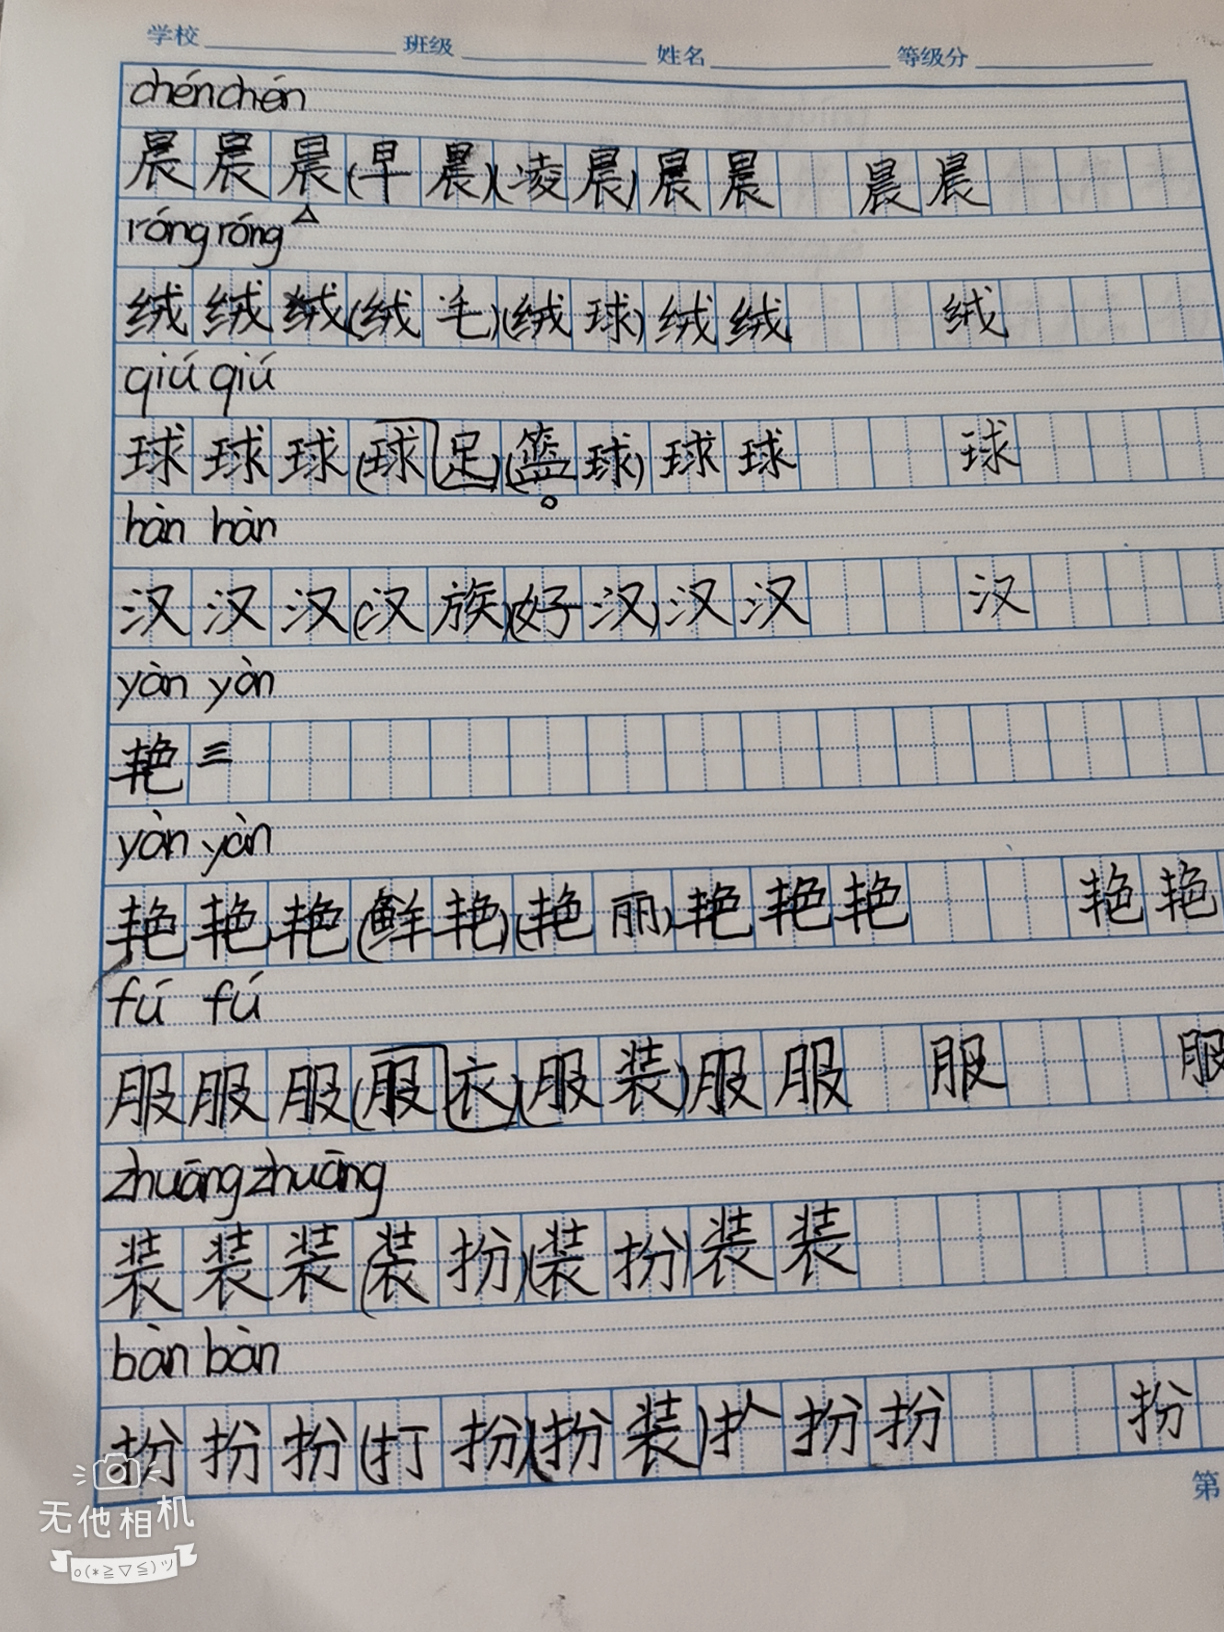 学校 班级 姓名 等级分
chénchén
晨晨晨(早晨)(凌晨)晨晨 晨晨
róngróng
绒绒绒(绒毛)(绒球)绒绒 绒
qiúqiú
球球球(球足)(篮球)球球 球
hàn hàn
汉汉汉(汉族)(好汉)汉汉 汉
yàn yàn
艳
yàn yàn
艳艳艳(鲜艳)(艳丽)艳艳艳 艳艳
fú fú
服服服(服衣)(服装)服服 服 服
zhuāngzhuāng
装装装(装扮)(装扮)装装
bàn bàn
扮扮扮(打扮)(扮装)扮扮 扮
第
无他相机
o(*≧▽≦)ツ